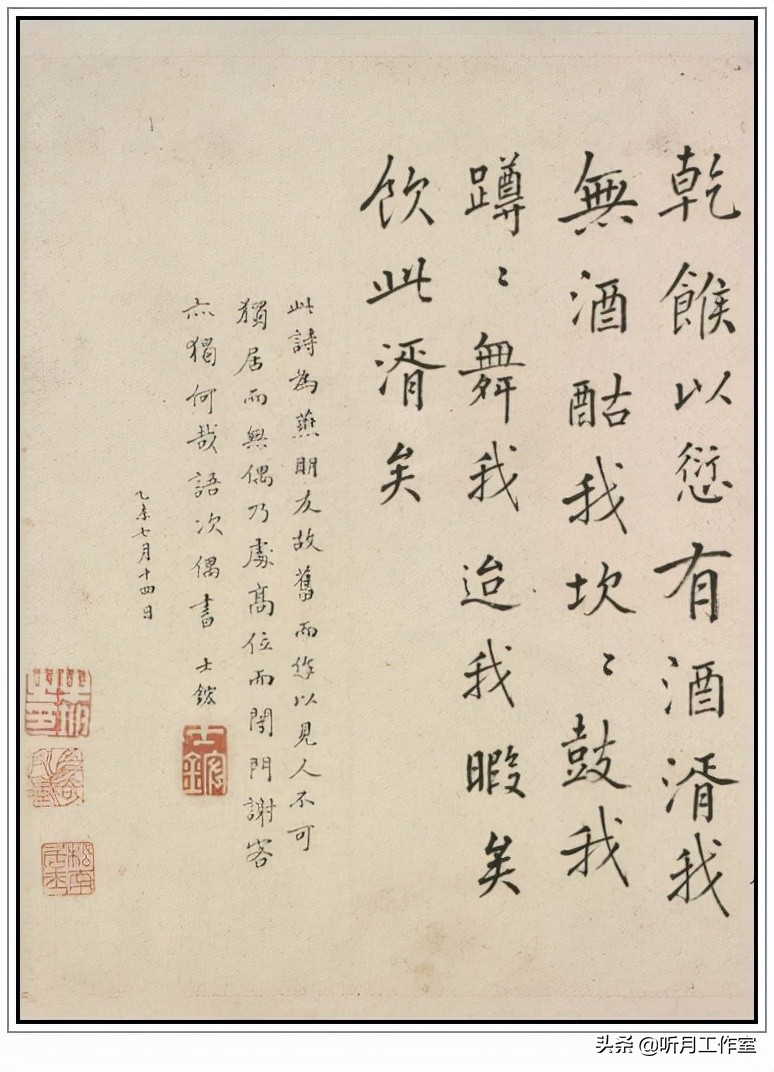 乾餱以愆有酒湑我
無酒酤我坎〻鼓我
蹲〻舞我迨我暇矣
飲此湑矣
此詩為燕朋友故舊而作以見人不可
獨居而無偶乃處高位而閉門謝客
亦獨何哉語次偶書 士鋐
乙未七月十四日
士鋐
头条 @听月工作室